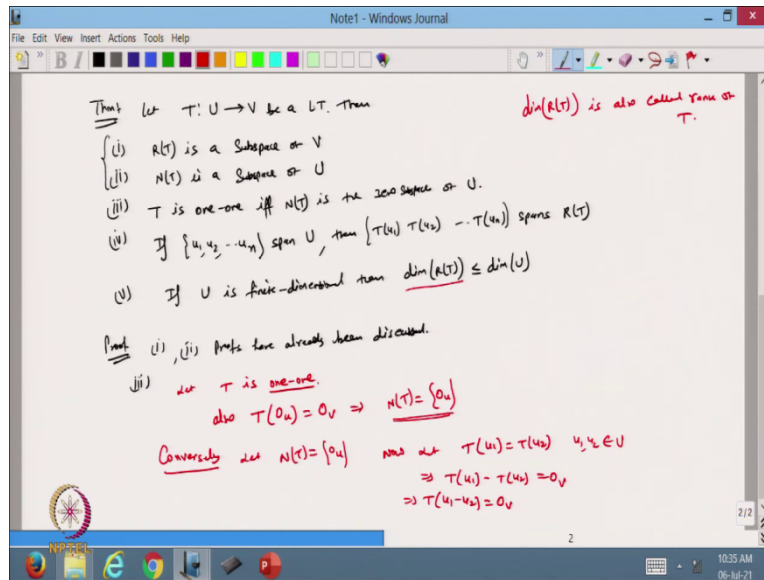 Note1 - Windows Journal
File Edit View Insert Actions Tools Help
B I
Thm: Let T: U → V be a LT. Then
dim(R(T)) is also called rank of T.
(i) R(T) is a Subspace of V
(ii) N(T) is a Subspace of U
(iii) T is one-one iff N(T) is the zero subspace of U.
(iv) If {u1, u2, --- un} span U, then {T(u1) T(u2) --- T(un)} spans R(T)
(v) If U is finite-dimensional then dim(R(T)) ≤ dim(U)
Proof (i), (ii) Proofs have already been discussed.
(iii) Let T is one-one.
also T(0u) = 0v ⇒ N(T) = {0u}
Conversely Let N(T) = {0u} Now let T(u1) = T(u2) u1, u2 ∈ U
⇒ T(u1) - T(u2) = 0v
⇒ T(u1-u2) = 0v
NPTEL
2/2
2
10:35 AM
06-Jul-21